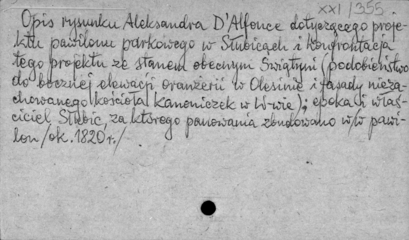 XXI/355.
Opis rysunku Aleksandra D'Alfonce dotyczącego proje-
ktu pawilonu parkowego w Słubicach i konfrontacja
tego projektu ze stanem obecnym Świątyni (podobieństwo
do bocznej elewacji oranżerii w Olesinie i fasady nieza-
chowanego kościoła kanoniczek w W-wie); epoka i właś-
ciciel Słubic, za którego panowania zbudowano w/w pawi-
lon /ok. 1820 r./